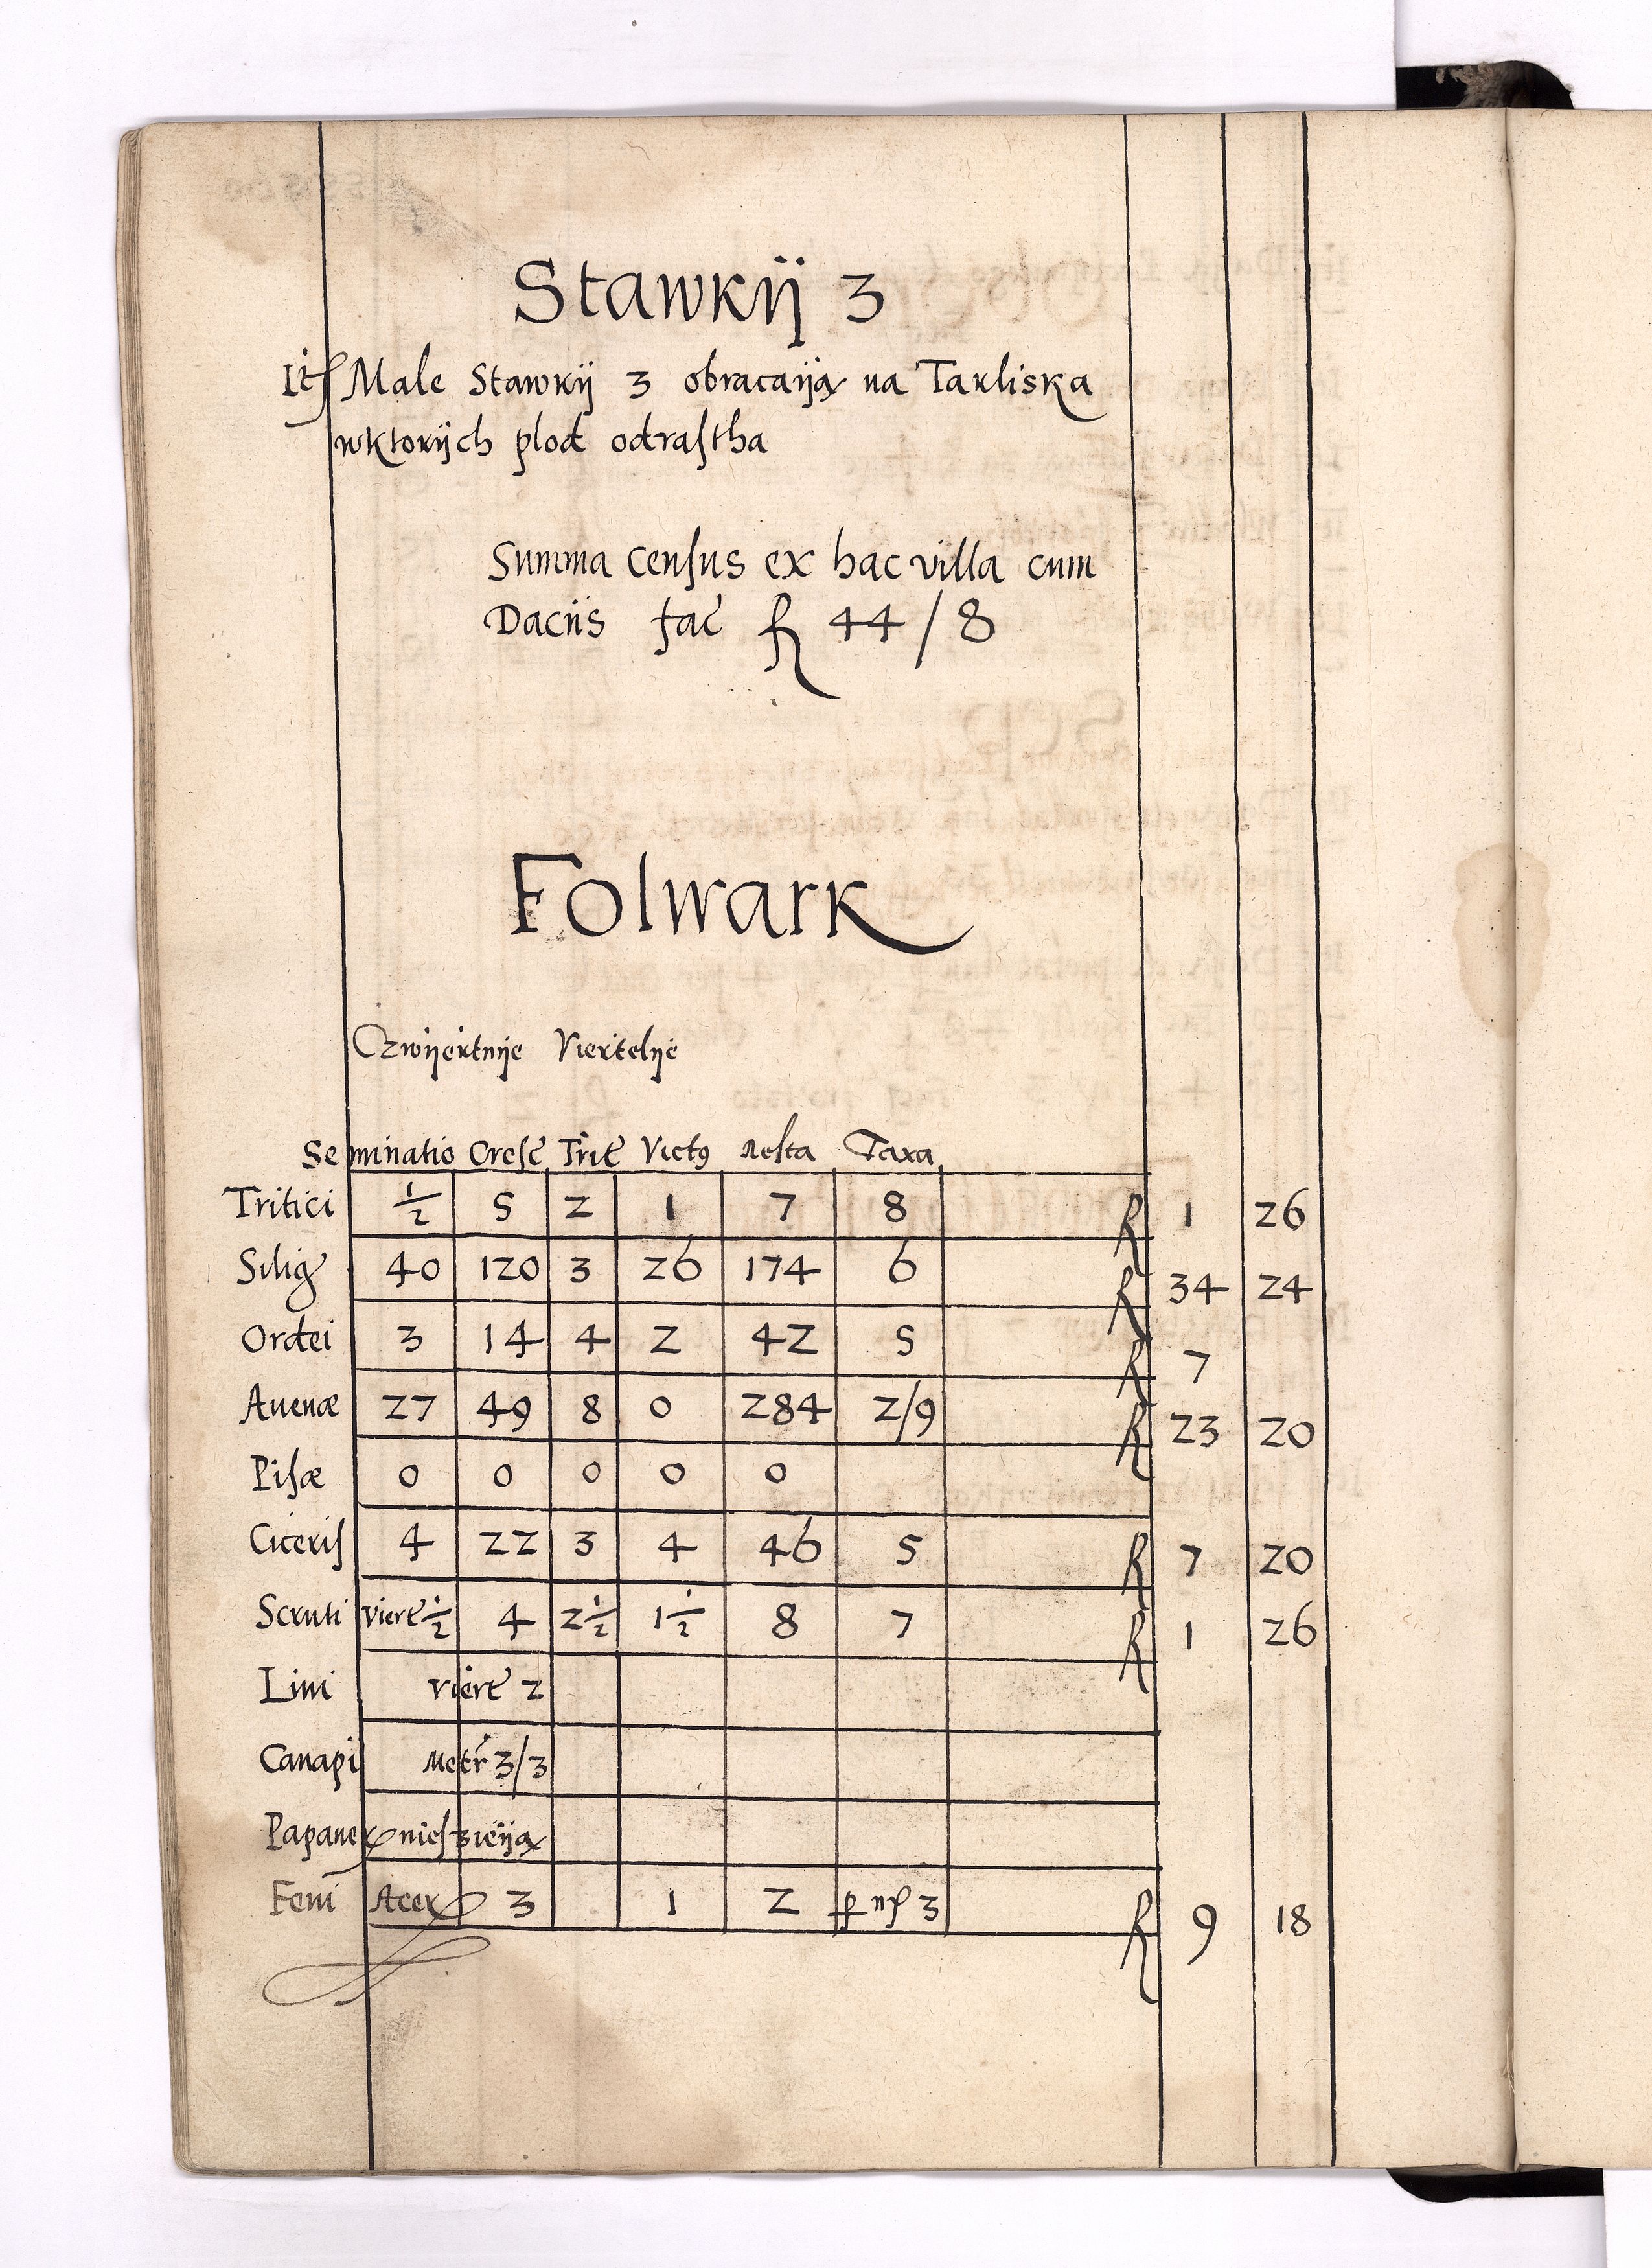 Stawkij 3
It Male Stawkij 3 obracaiją na Tarliska
wktorijch plod odrastha
Summa census ex hac villa cum
Daciis fac fl 44/8
Folwark
Czwijertnije Viertelije
Seminatio Cresc Trit Vict9 Resta Taxa
Tritici 1/2 5 2 1 7 8 fl 1 26
Silig 40 120 3 26 174 6 fl 34 24
Ordei 3 14 4 2 42 5 fl 7
Auenæ 27 49 8 0 284 2/9 fl 23 20
Pisæ 0 0 0 0 0
Ciceris 4 22 3 4 46 5 fl 7 20
Scruti Viert 1/2 4 2 1/2 1 1/2 8 7 fl 1 26
Lini Viert 2
Canapi Metr 3/3
Papaner niesieiją
Feni Acer 3 1 2 3 fl 9 18